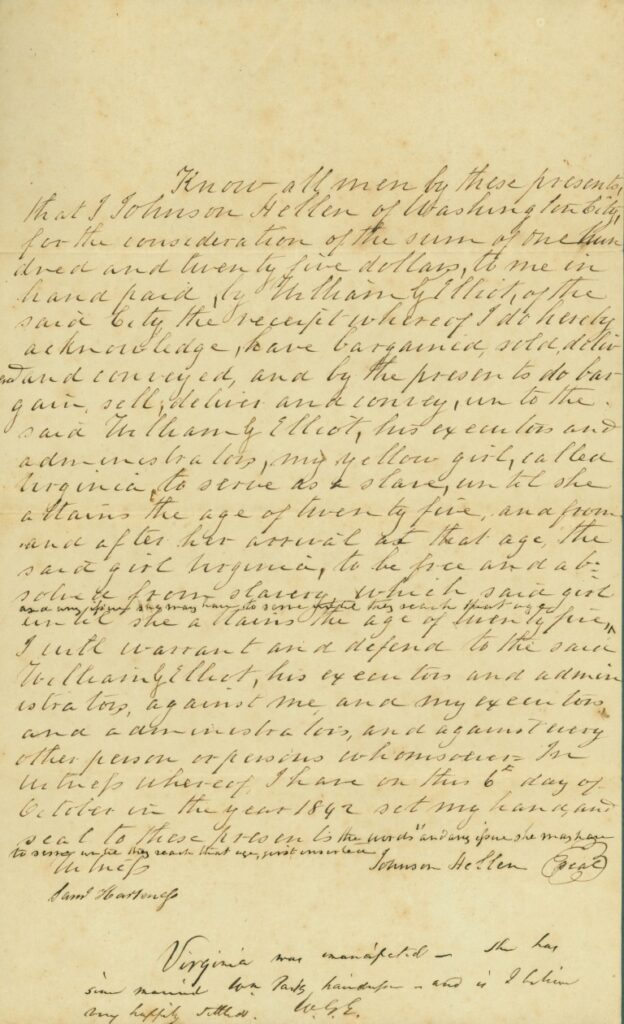 Know all men by these presents,
that I Johnson Hellen of Washington City,
for the consideration of the sum of one hun
dred and twenty five dollars, to me in
hand paid, by William G Elliot, of the
said City, the receipt whereof I do hereby
acknowledge, have bargained, sold, deliv
ered and conveyed, and by the presents do bar
gain, sell, deliver and convey, un to the
said William G Elliot, his executors and
administrators, my yellow girl, called
Virginia, to serve as a slave, until she
attains the age of twenty five, and from
and after her arrival at that age, the
said girl Virginia, to be free and ab=
solved from slavery, which said girl
and any issue she may have to serve until they reach that age
until she attains the age of twenty five,
I will warrant and defend to the said
William G Elliot, his executors and admin
istrators, against me, and my executors,
and administrators, and against every
other person or persons whomsoever= In
witness whereof, I have on this 6th day of
October in the year 1842 set my hand, and
seal to these presents the words "and any issue she may have
to serve until they reach that age, first inserted
Witness
Johnson Hellen Seal
Saml Harkness
Virginia was emancipated — she has
since married Wm Parks, — and is I believe
very happily settled. W.G.E.